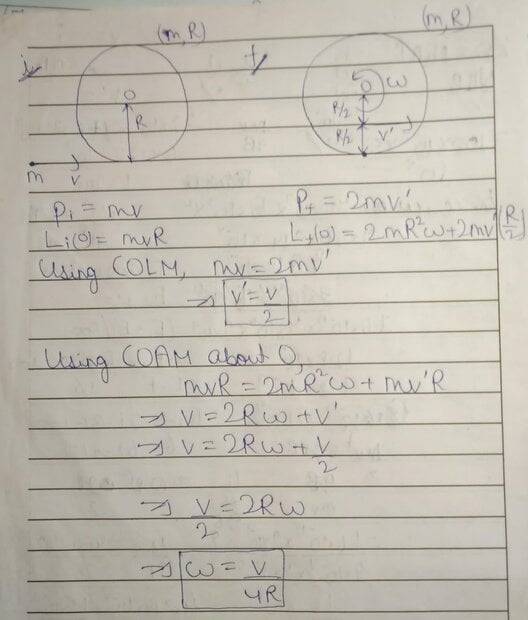 (m,R) (m,R)
i f
O O ω
R R/2
R/2 v'
m v
Pi = mv Pf = 2mv'
Li(O) = mvR Lf(O) = 2mR²ω+2mv'(R/2)
Using COLM, mv = 2mv'
⇒ v' = v/2
Using COAM about O,
mvR = 2mR²ω + mv'R
⇒ v = 2Rω + v'
⇒ v = 2Rω + v/2
⇒ v/2 = 2Rω
⇒ ω = v/4R